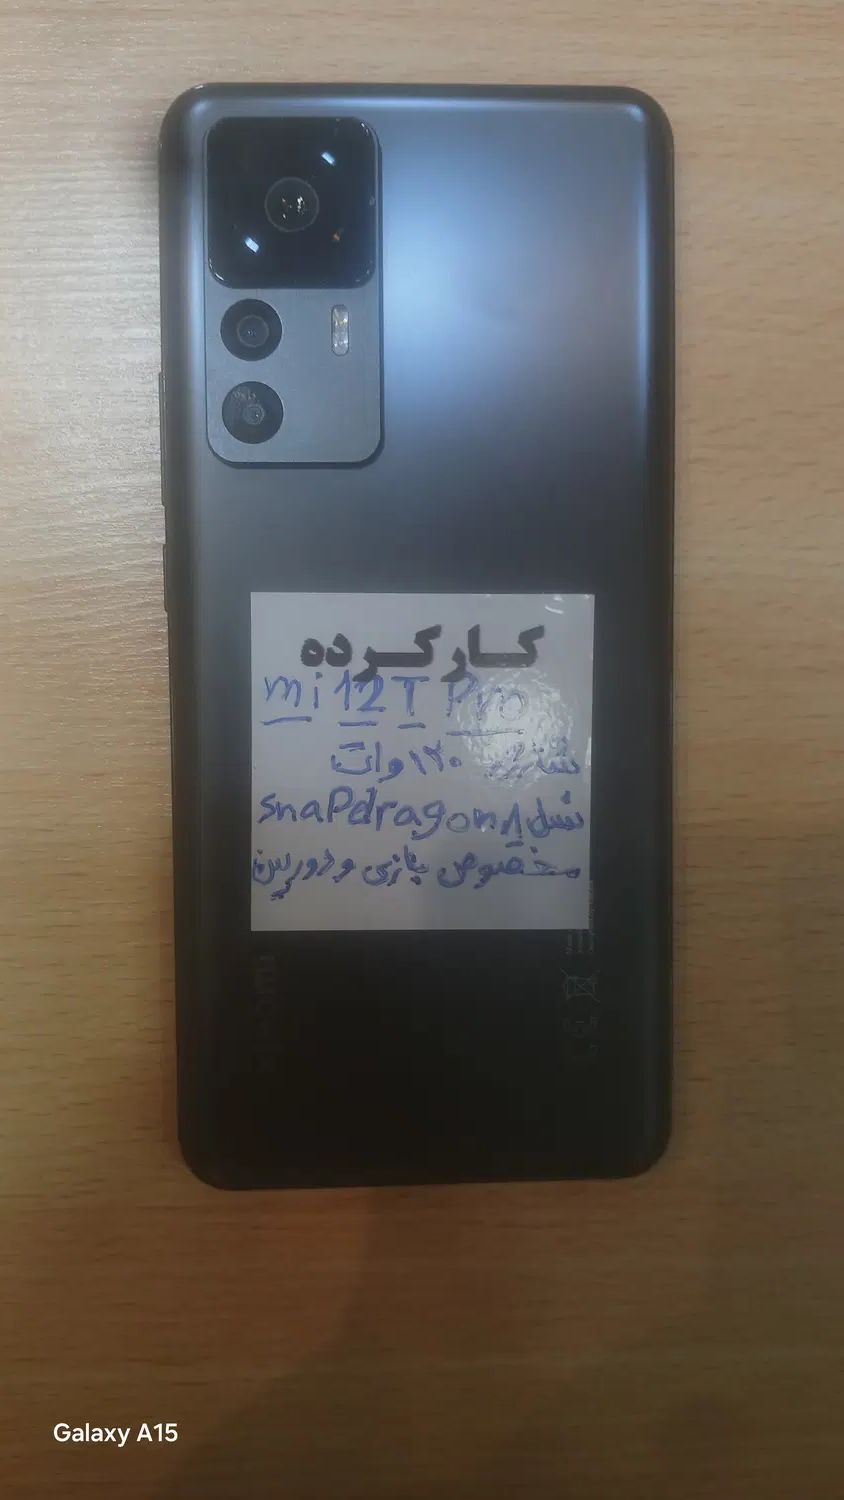 کارکرده
mi 12T Pro
شارژر ۱۲۰ وات
snapdragon نسل ۸
مخصوص بازی و دوربین
xiaomi
CE
Galaxy A15